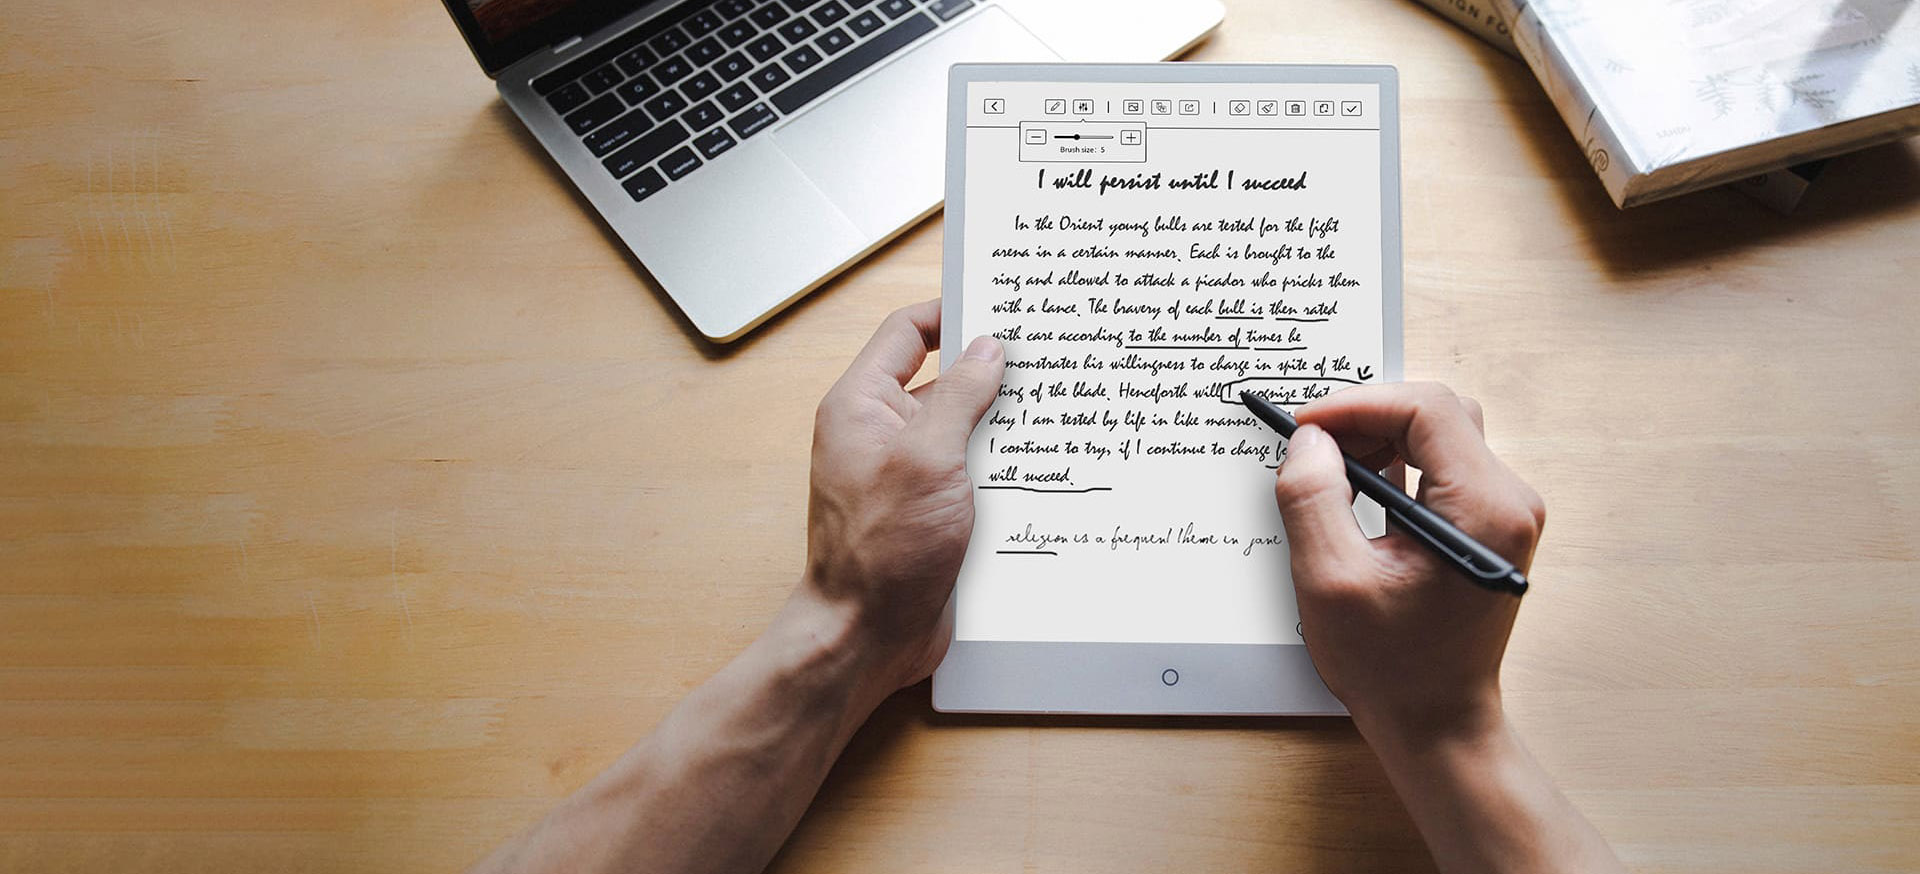 Brush size: 5
I will persist until I succeed
In the Orient young bulls are tested for the fight
arena in a certain manner. Each is brought to the
ring and allowed to attack a picador who pricks them
with a lance. The bravery of each bull is then rated
with care according to the number of times he
monstrates his willingness to charge in spite of the
ting of the blade. Henceforth will I recognize that
day I am tested by life in like manner.
I continue to try, if I continue to charge
will succeed.
religion is a frequent theme in jane
tab
caps lock
shift
fn
control
option
command
Q W E R T Y
A S D F G H
Z X C V B N M
IGN FO